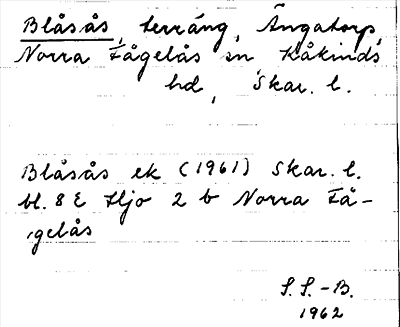 Blåsås, terräng, Ängatorp,
Norra Fågelås sn Kåkinds
hd, Skar. l.
Blåsås ek (1961) Skar. l.
bl. 8 E Hjo 2 b Norra Få-
gelås
S. S.-B.
1962